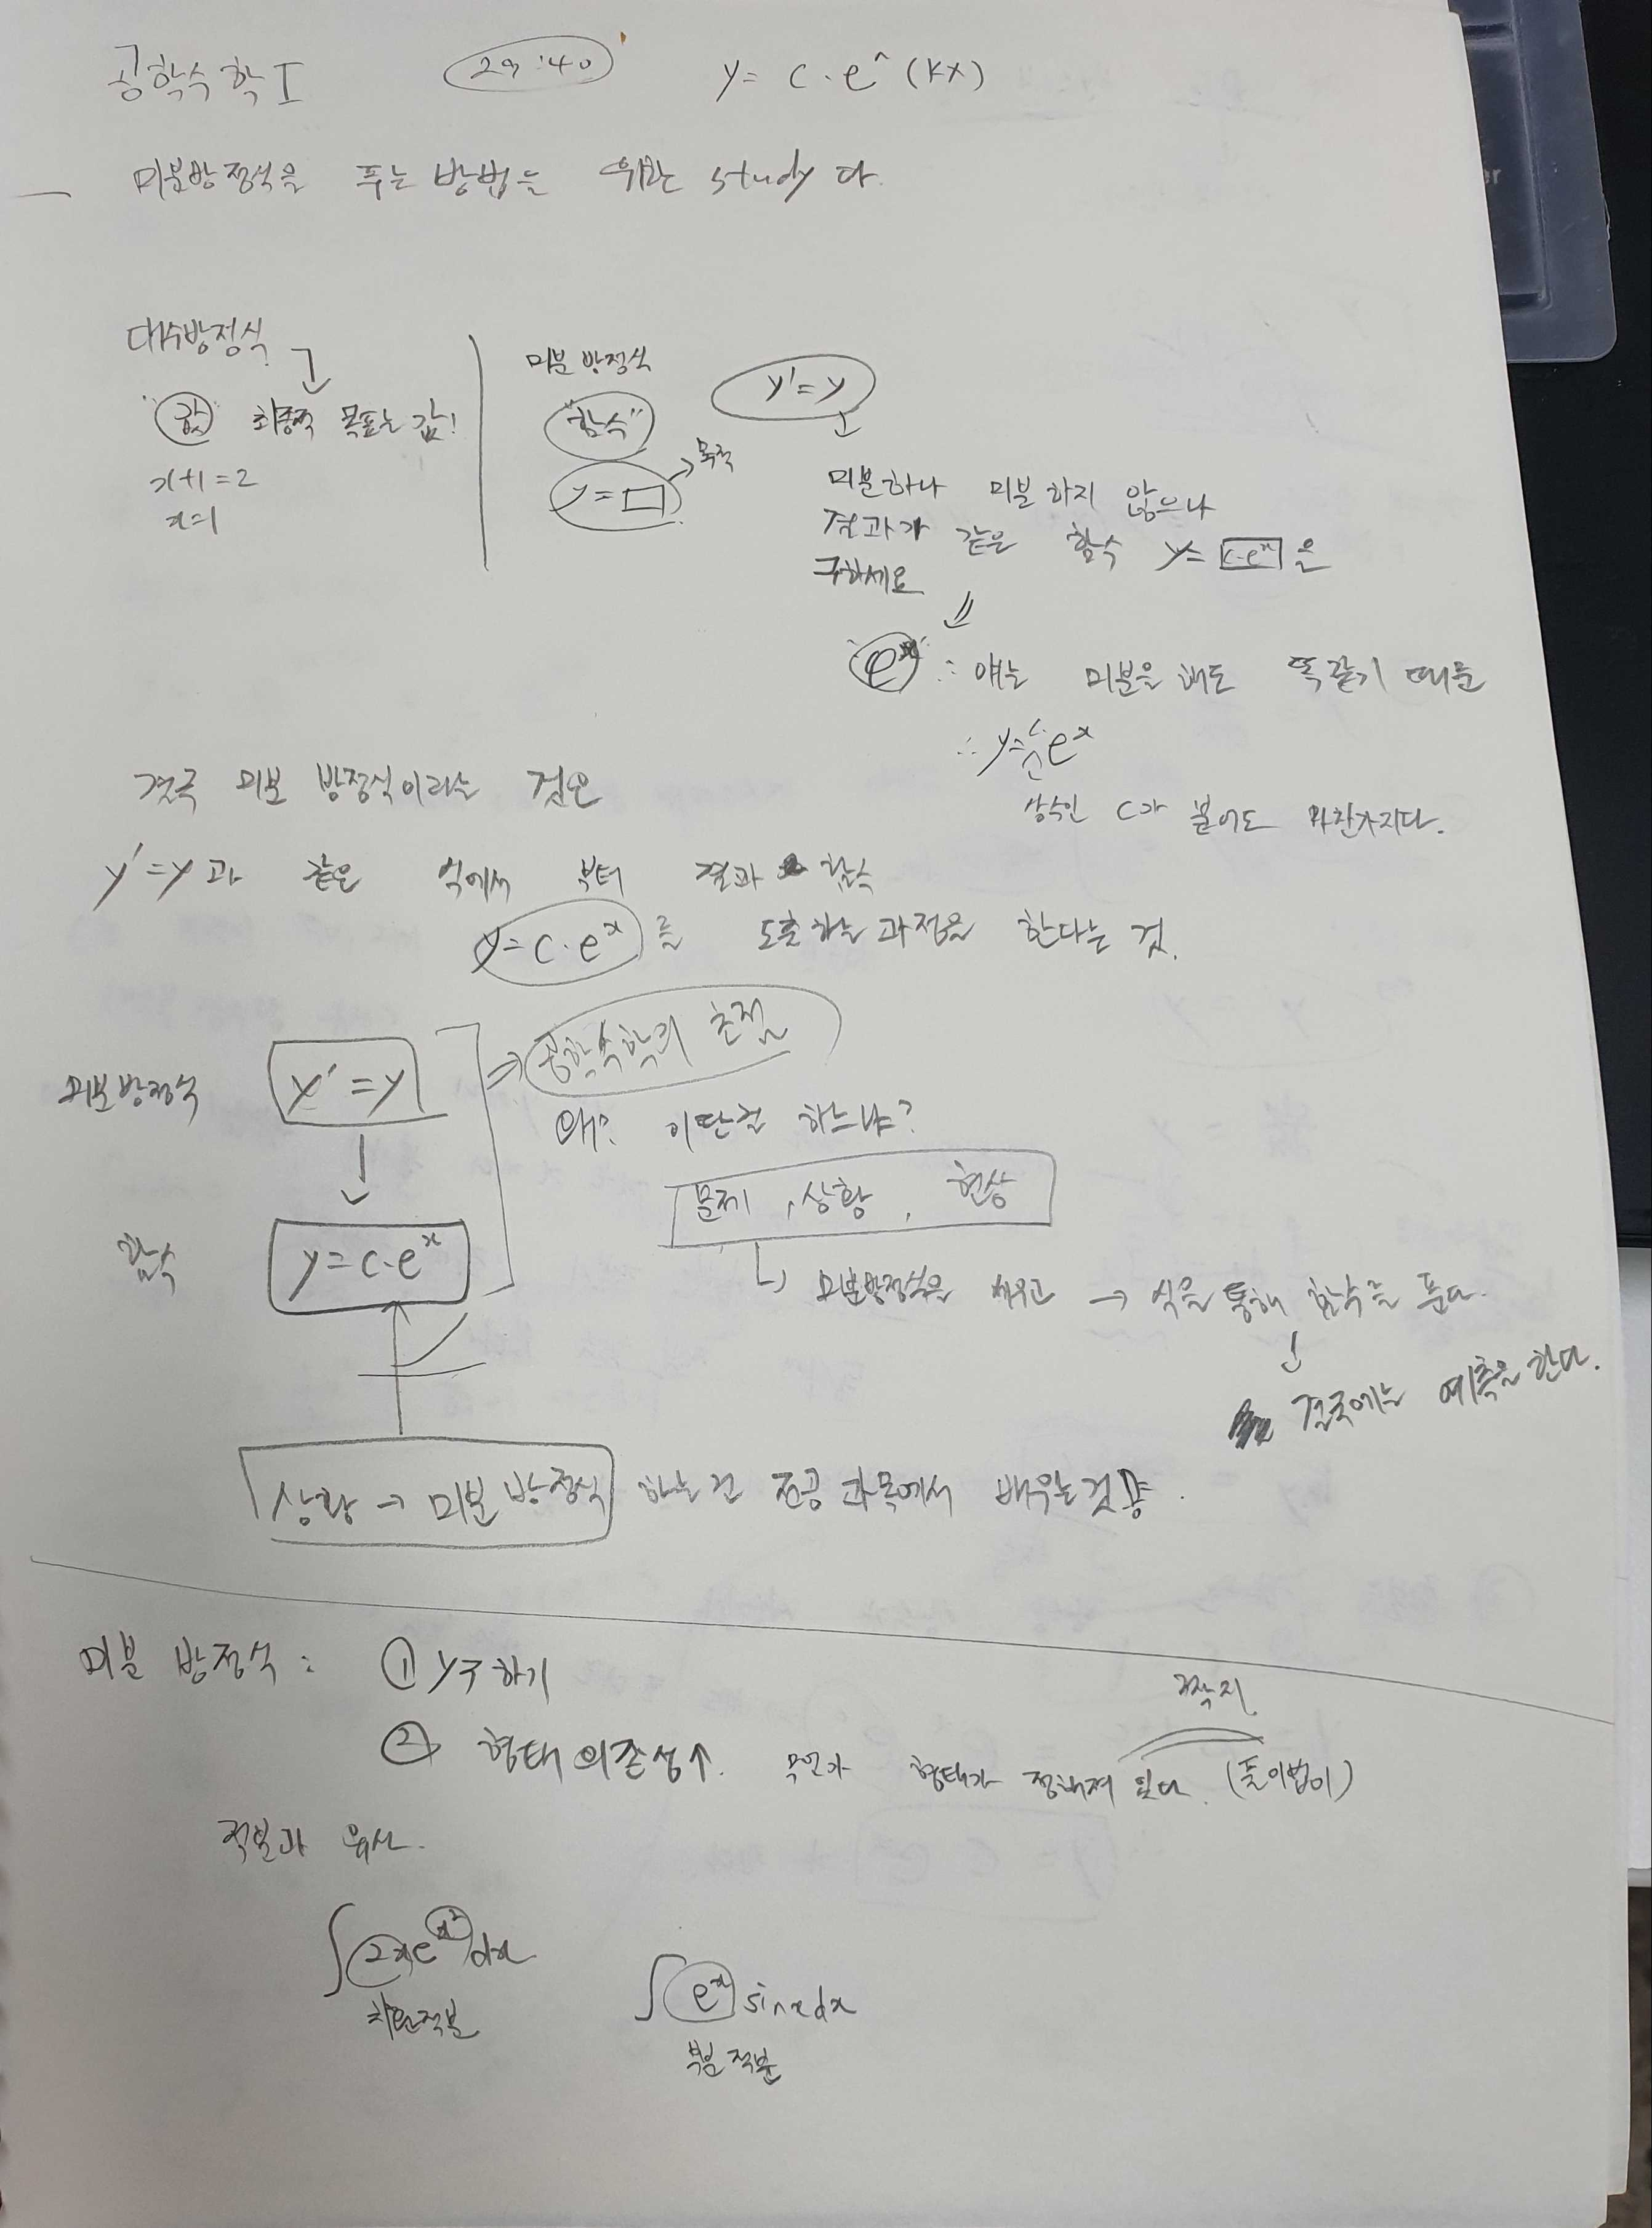 공학수학 I
29:40
y = c·e^(kx)
미분방정식을 푸는 방법는 위한 study 다.
대수방정식
"값" 최종적 목표는 값!
x+1=2
x=1
미분 방정식
"함수"
y=□ → 목적
y'=y
미분하나 미분 하지 않으나
결과가 같은 함수 y= c·eˣ 을
구하세요
"eˣ" ∵ 얘는 미분을 해도 똑같기 때문
∴ y=c·eˣ
상수인 c가 붙어도 마찬가지다.
결국 미분 방정식이라는 것은
y'=y 과 같은 식에서 부터 결과 함수
y=c·eˣ 를 도출하는 과정을 한다는 것.
미분방정식 y'=y
⇒ 공학수학의 초점
왜? 이딴걸 하느냐?
문제, 상황, 현상
함수 y=c·eˣ
미분방정식을 세우고 → 식을 통해 함수를 푼다.
결국에는 예측을 한다.
상황 → 미분 방정식 하는건 전공 과목에서 배우는것
미분 방정식 : ① y구하기
② 형태 의존성↑. 무언가 형태가 정해져 있다. (풀이법이)
짝지
적분과 유사.
∫2xe^x² dx
치환적분
∫eˣ sinx dx
부분적분
er